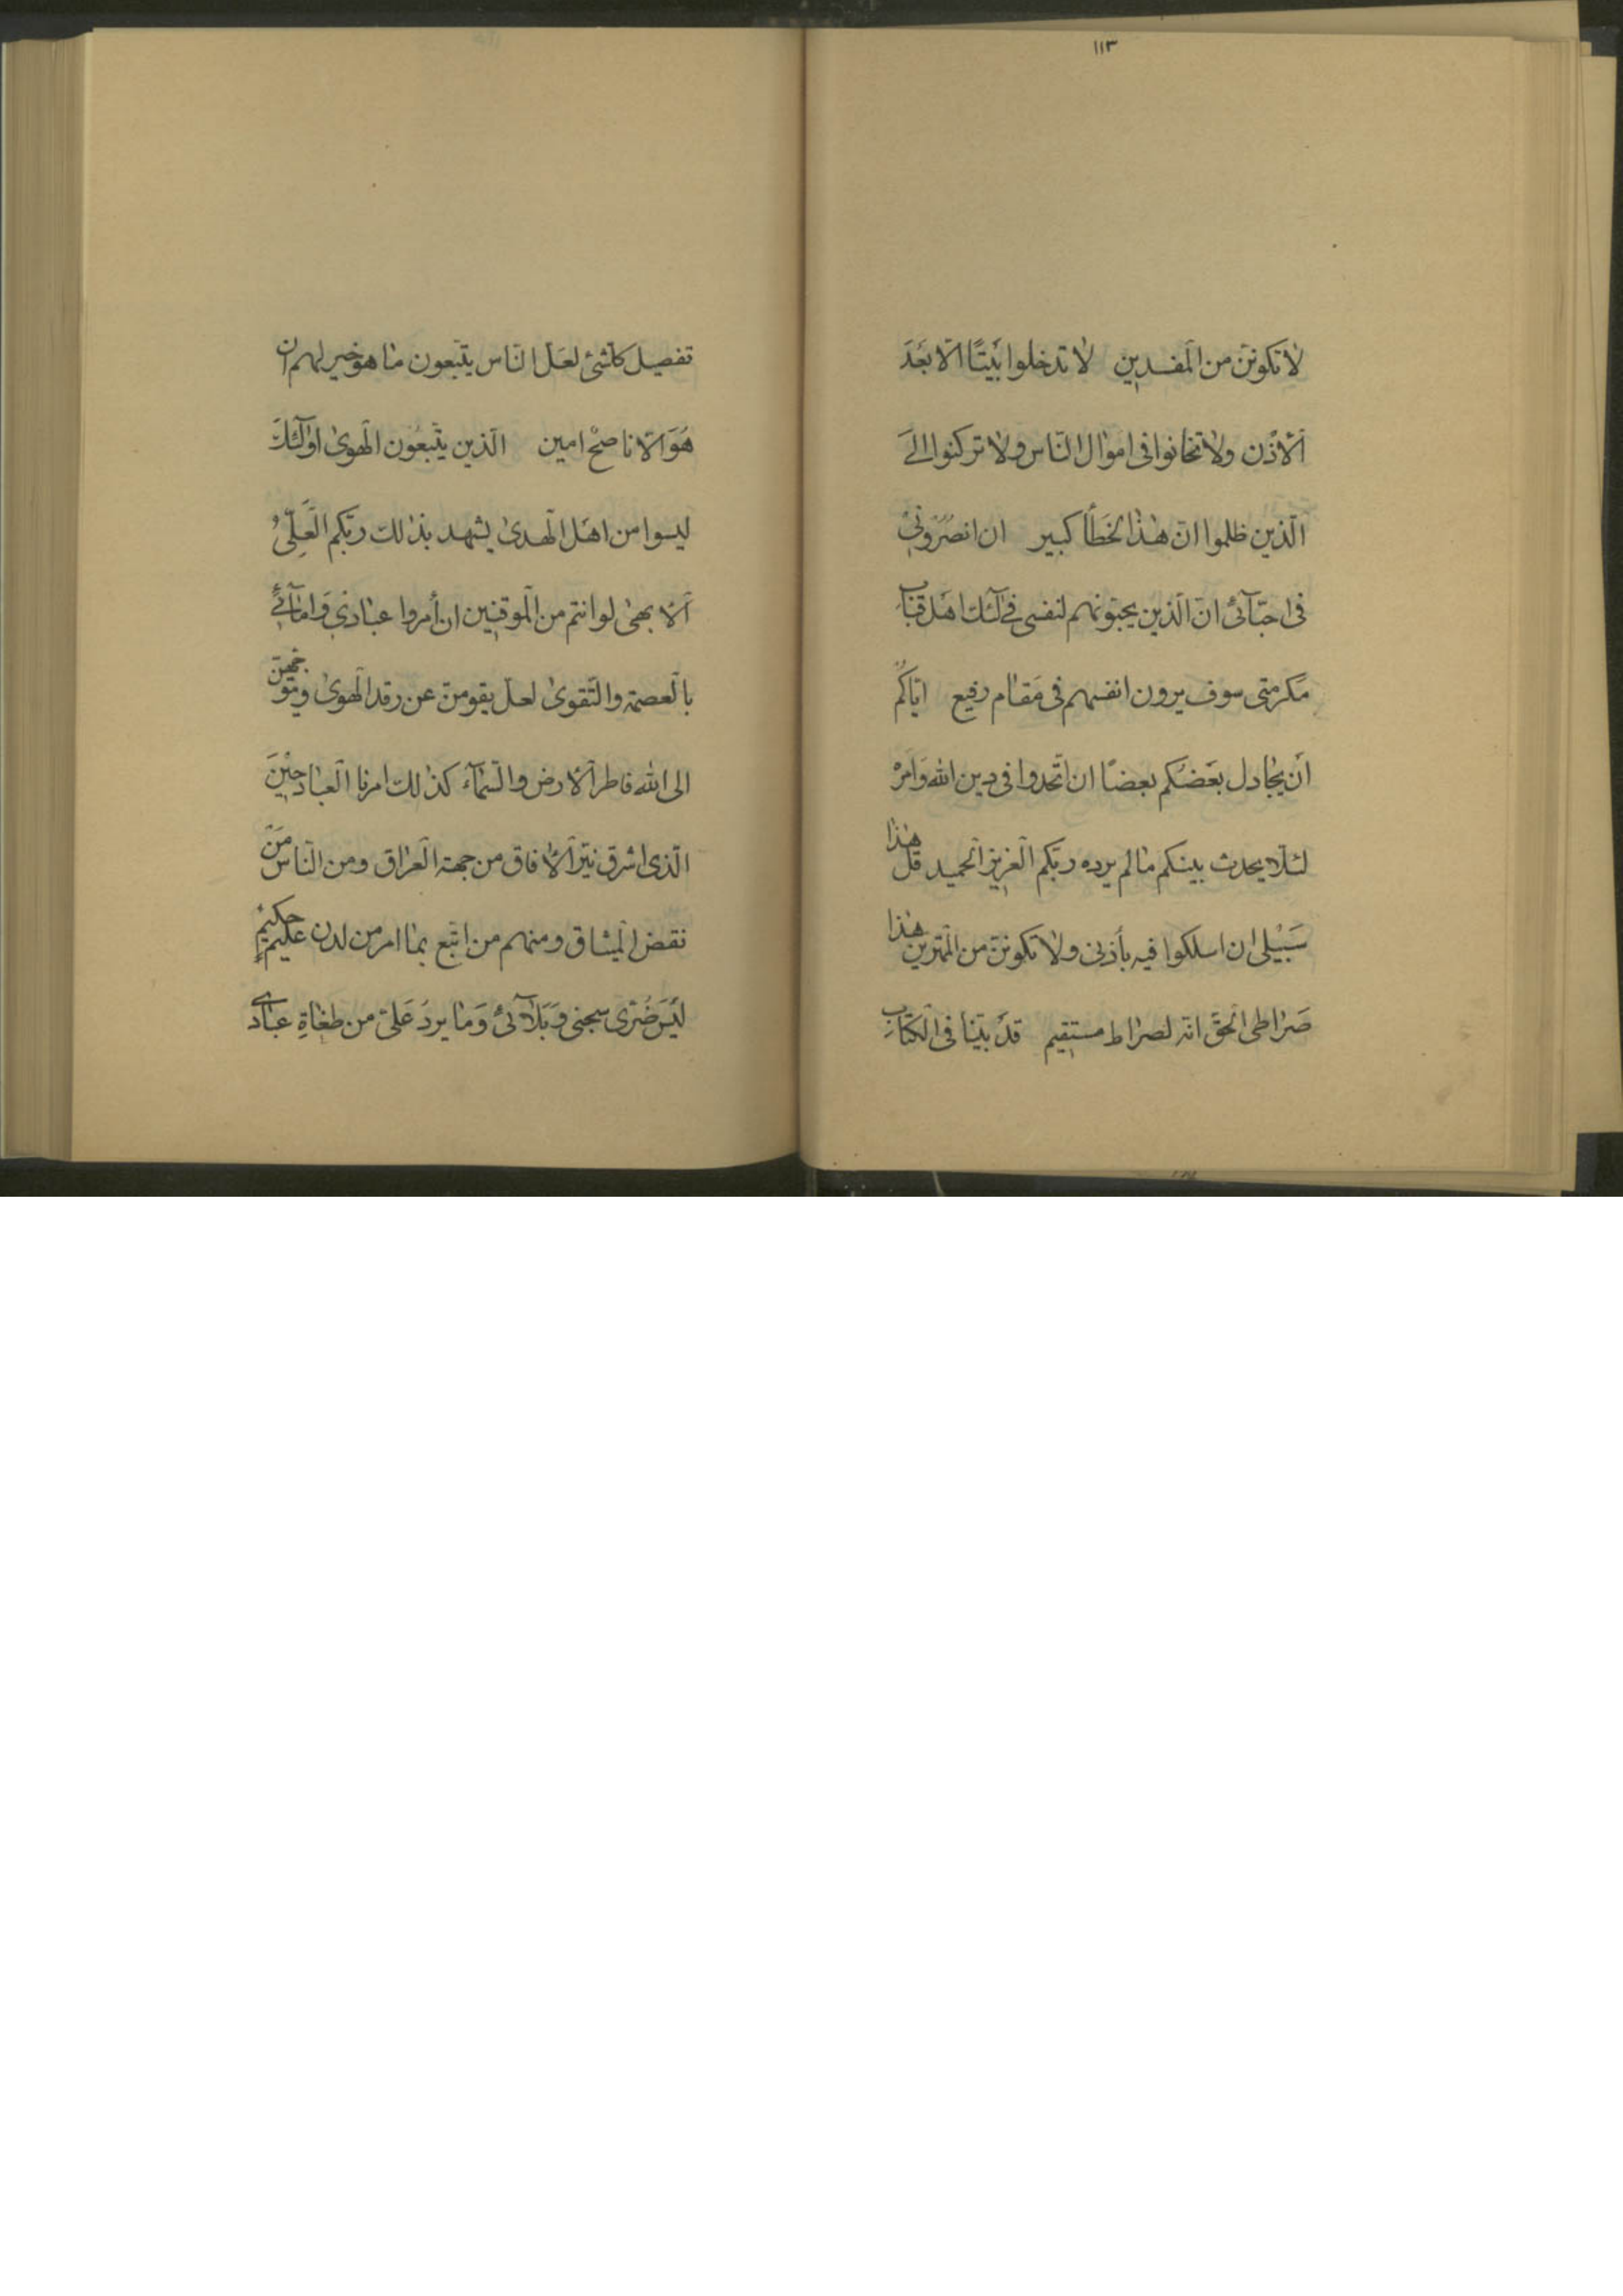 ١١٣
لا تكوننّ من المفسدين لا تدخلوا بيتًا الّا بعد
الأذن ولا تخانوا فى اموال النّاس ولا تركنوا الى
الّذين ظلموا انّ هذا لخطأ كبير ان انصرونى
فى احبّآئى انّ الّذين يحبّونهم لنفسى اهل قباب
مكرمتى سوف يرون انفسهم فى مقام رفيع ايّاكم
أن يجادل بعضكم بعضًا ان اتّحدوا فى دين الله وامره
لئلّا يحدث بينكم ما لم يرده ربّكم العزيز الحميد قل هذا
سبيلى ان اسلكوا فيه بأذنى ولا تكوننّ من الممترين هذا
صراطى الحقّ انّه لصراط مستقيم قد بيّنا فى الكتاب
تفصيل كلّشئ لعلّ النّاس يتّبعون ما هو خير لهم ان
هو الّا ناصح امين الّذين يتّبعون الهوى اولئك
ليسوا من اهل الهدى يشهد بذلك ربّكم العلىّ
الأبهى لو انتم من الموقنين ان أمروا عبادى وامآئى
بالعصمة والتّقوى لعلّ يقومنّ عن رقد الهوى ويتوجّهنّ
الى الله فاطر الأرض والسّمآء كذلك امرنا العباد حين
الّذى اشرق نيّر الأفاق من جهة العراق ومن النّاس من
نقض الميثاق ومنهم من اتّبع بما امر من لدن عليم حكيم
ليس ضرّى سجنى وبلآئى وما يرد علىّ من طغاة عبادى